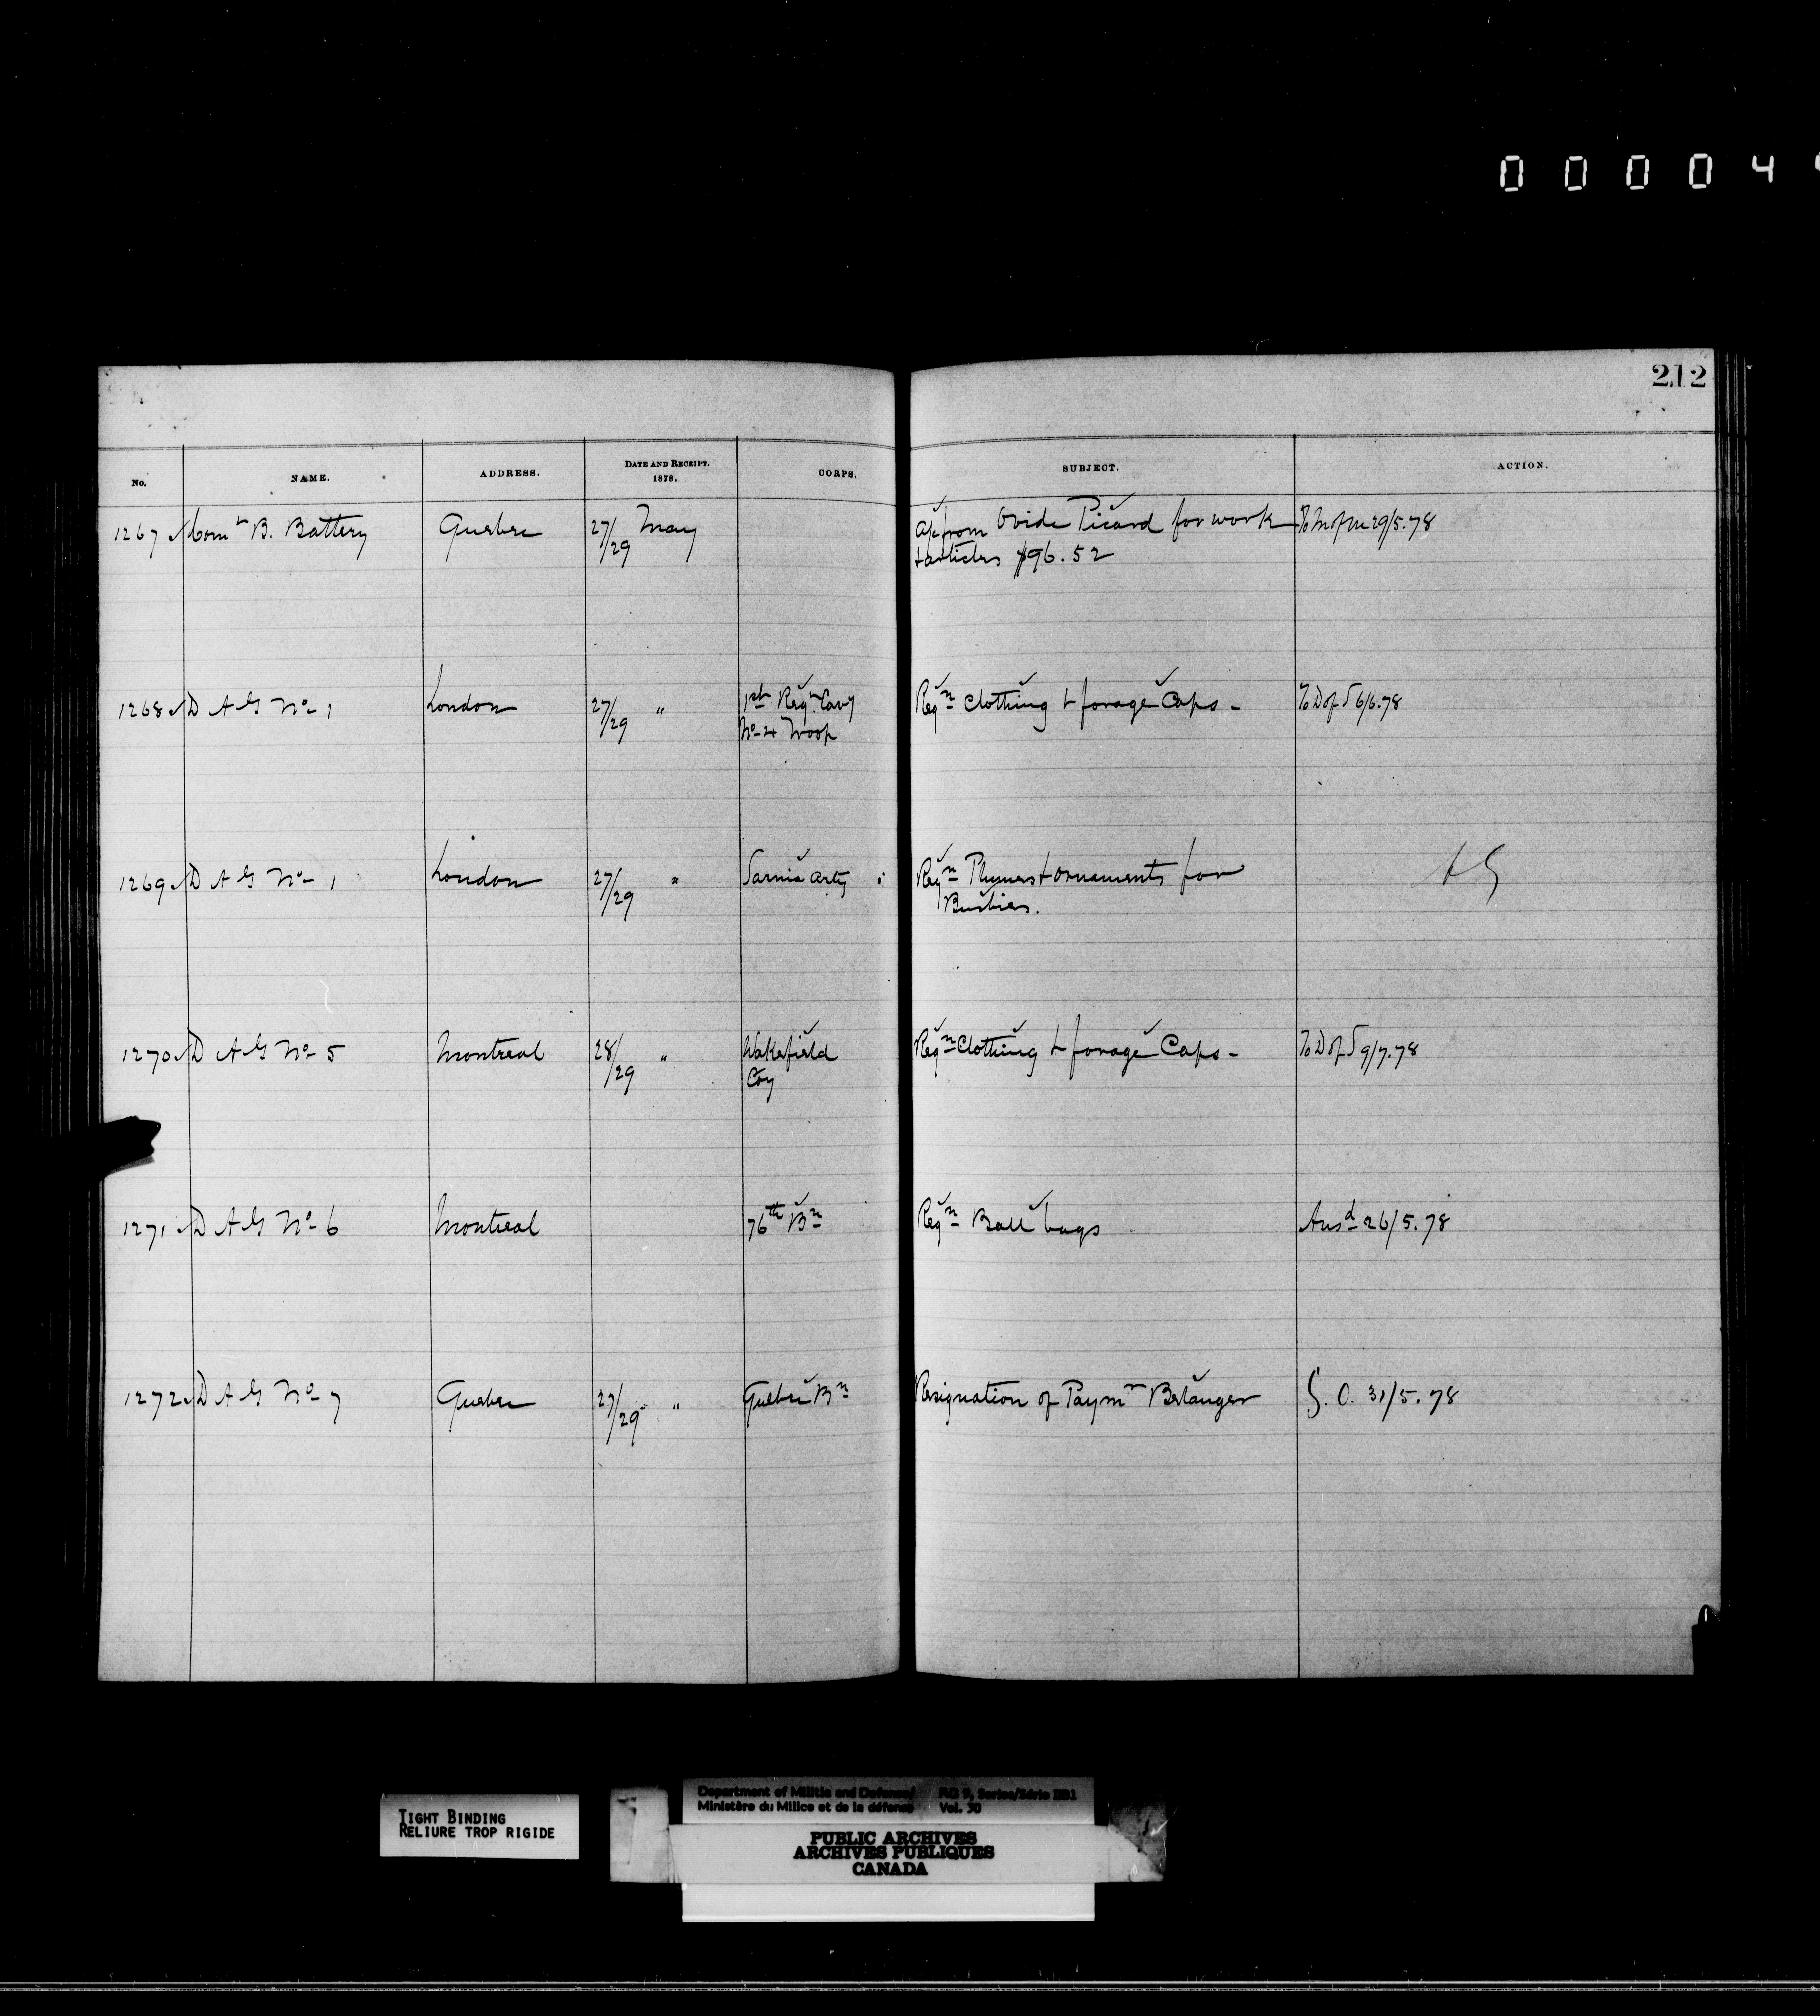 0 0 0 0 4
212
No. NAME. ADDRESS. DATE AND RECEIPT. 1878. CORPS. SUBJECT. ACTION.
1267 Comt B. Battery Quebec 27/29 May a/c from Ovide Picard for work To M of M 29/5.78
+ articles $96.52
1268 D A G No 1 London 27/29 " 1st Regt Cavy Reqn Clothing + forage Caps - To D of S 6/6.78
No 4 Troop
1269 D A G No 1 London 27/29 " Sarnia Arty Reqn Plumes + ornaments for
Busbies.
1270 D A G No 5 Montreal 28/29 " Wakefield Reqn Clothing + forage Caps - To D of S 9/7.78
Coy
1271 D A G No 6 Montreal 76th Bn Reqn Ball bags Ansd 26/5.78
1272 D A G No 7 Quebec 27/29 " Quebec Bn Resignation of Paymr Belanger G. O. 31/5.78
TIGHT BINDING
RELIURE TROP RIGIDE
Department of Militia and Defence/ RG 9, Series/Série IIB1
Ministère du Milice et de la défense Vol. 30
PUBLIC ARCHIVES
ARCHIVES PUBLIQUES
CANADA